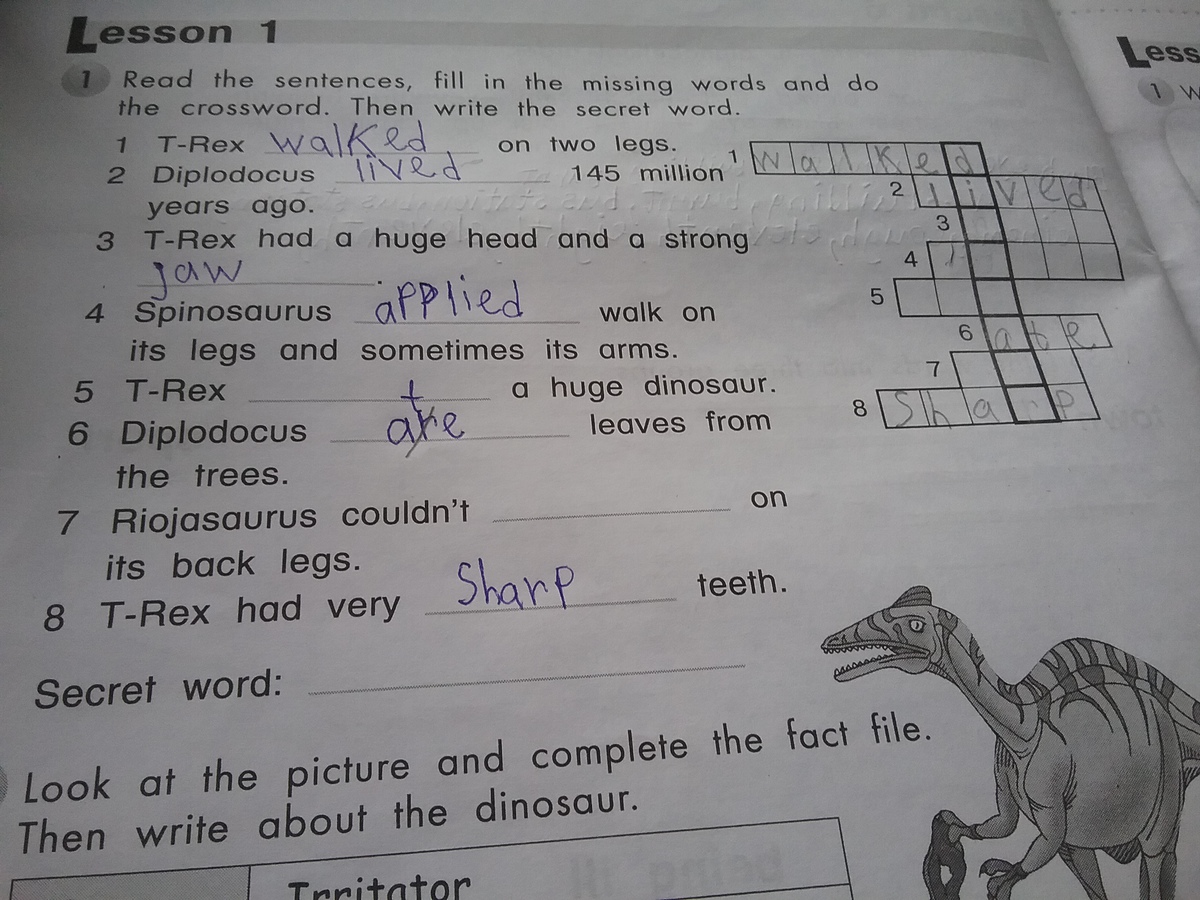 Lesson 1
Less
1 Read the sentences, fill in the missing words and do
the crossword. Then write the secret word.
1 W
1 T-Rex walked on two legs.
2 Diplodocus lived 145 million
years ago.
3 T-Rex had a huge head and a strong
jaw .
4 Spinosaurus applied walk on
its legs and sometimes its arms.
5 T-Rex a huge dinosaur.
6 Diplodocus ate leaves from
the trees.
7 Riojasaurus couldn't on
its back legs.
8 T-Rex had very Sharp teeth.
Secret word:
1 walked
2 lived
3
4
5
6 ate
7
8 Sharp
Look at the picture and complete the fact file.
Then write about the dinosaur.
Irritator